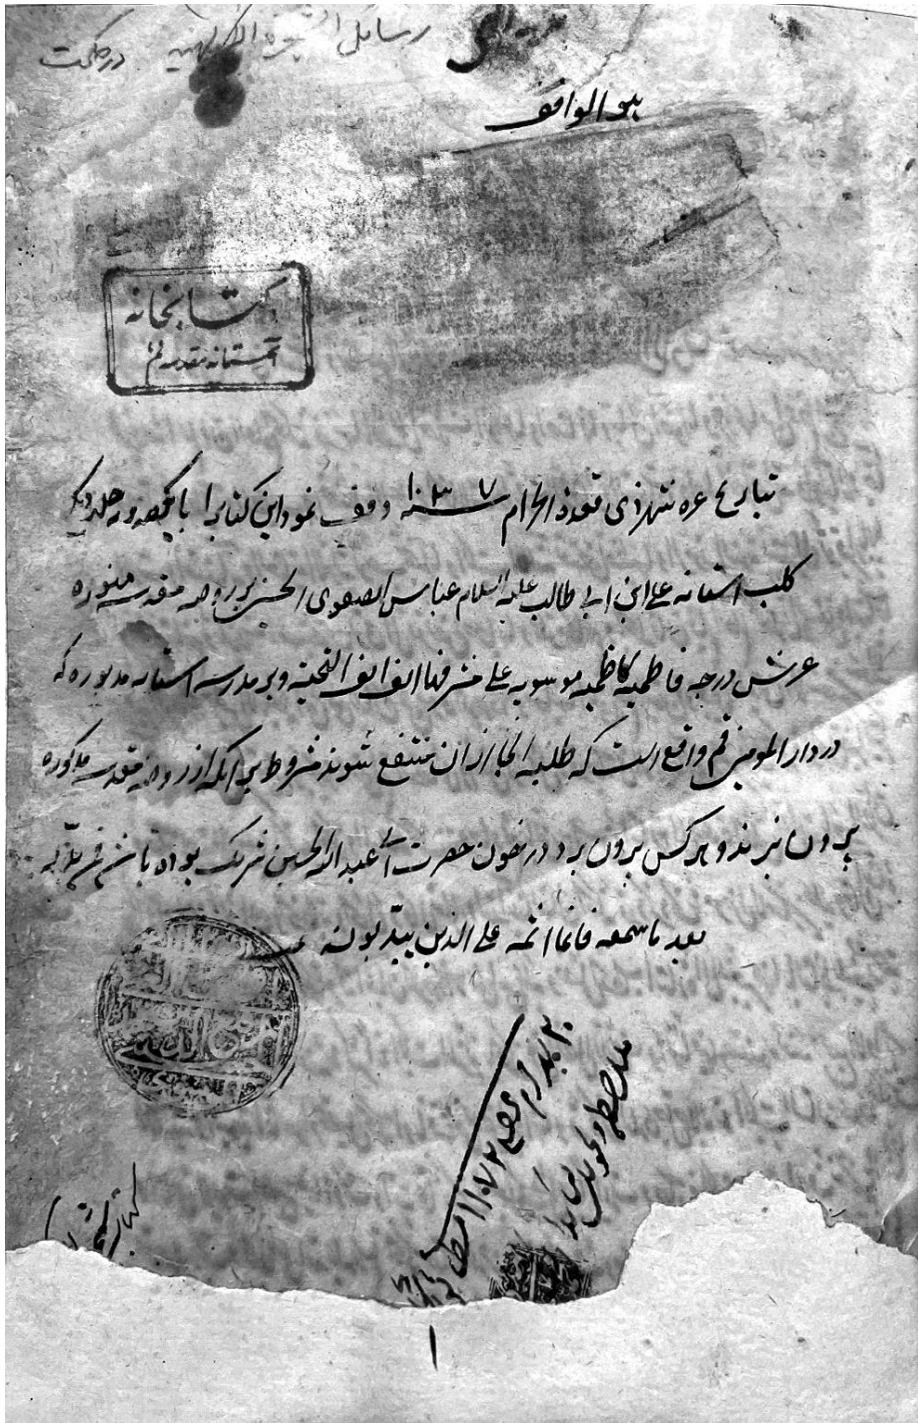 رسائل الشجرة الالهیه در حکمت
هو الواقف
کتابخانه
آستانه مقدسه قم
بتاریخ غره شهر ذی قعدة الحرام سنه ۱۰۳۷ وقف نمود این کتابرا با یکصد و نه جلد دیگر
کلب استانه علی ابن ابی طالب علیه السلام عباس الصفوی الحسینی بر روضه مقدسه منوره
عرش درجه فاطمیه کاظمیه موسویه علی مشرفها الف الف التحیه و بر مدرسه استانه مذبوره که
در دار المومنین قم واقع است که طلبه انجا ازان منتفع شوند مشروط بر انکه از روضه مقدسه مذکوره
بیرون نبرند و هر کس بیرون برد در خون حضرت ابی عبد الله الحسین شریک بوده باشد فمن بدّله
بعد ما سمعه فانما اثمه علی الذین یبدّلونه
ملاحظه و تحویل
۱